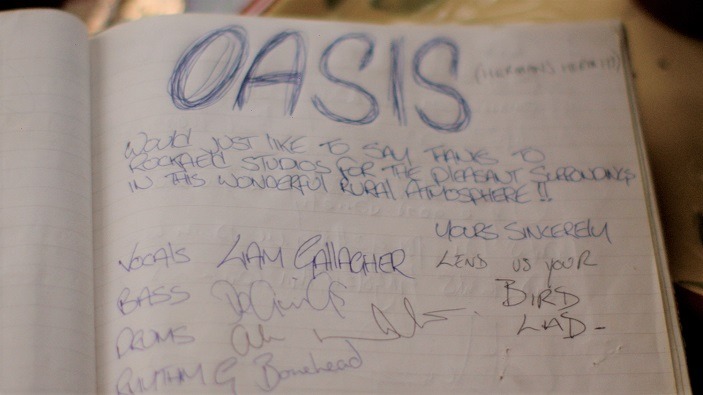 OASIS
WOULD JUST LIKE TO SAY THANKS TO
ROCKFIELD STUDIOS FOR THE PLEASANT SURRONDINGS
IN THIS WONDERFUL RURAL ATMOSPHERE!!
YOURS SINCERELY
VOCALS LIAM GALLAGHER
LEND US YOUR
BIRD
LAD-
BASS
DRUMS
RHYTHM G Bonehead